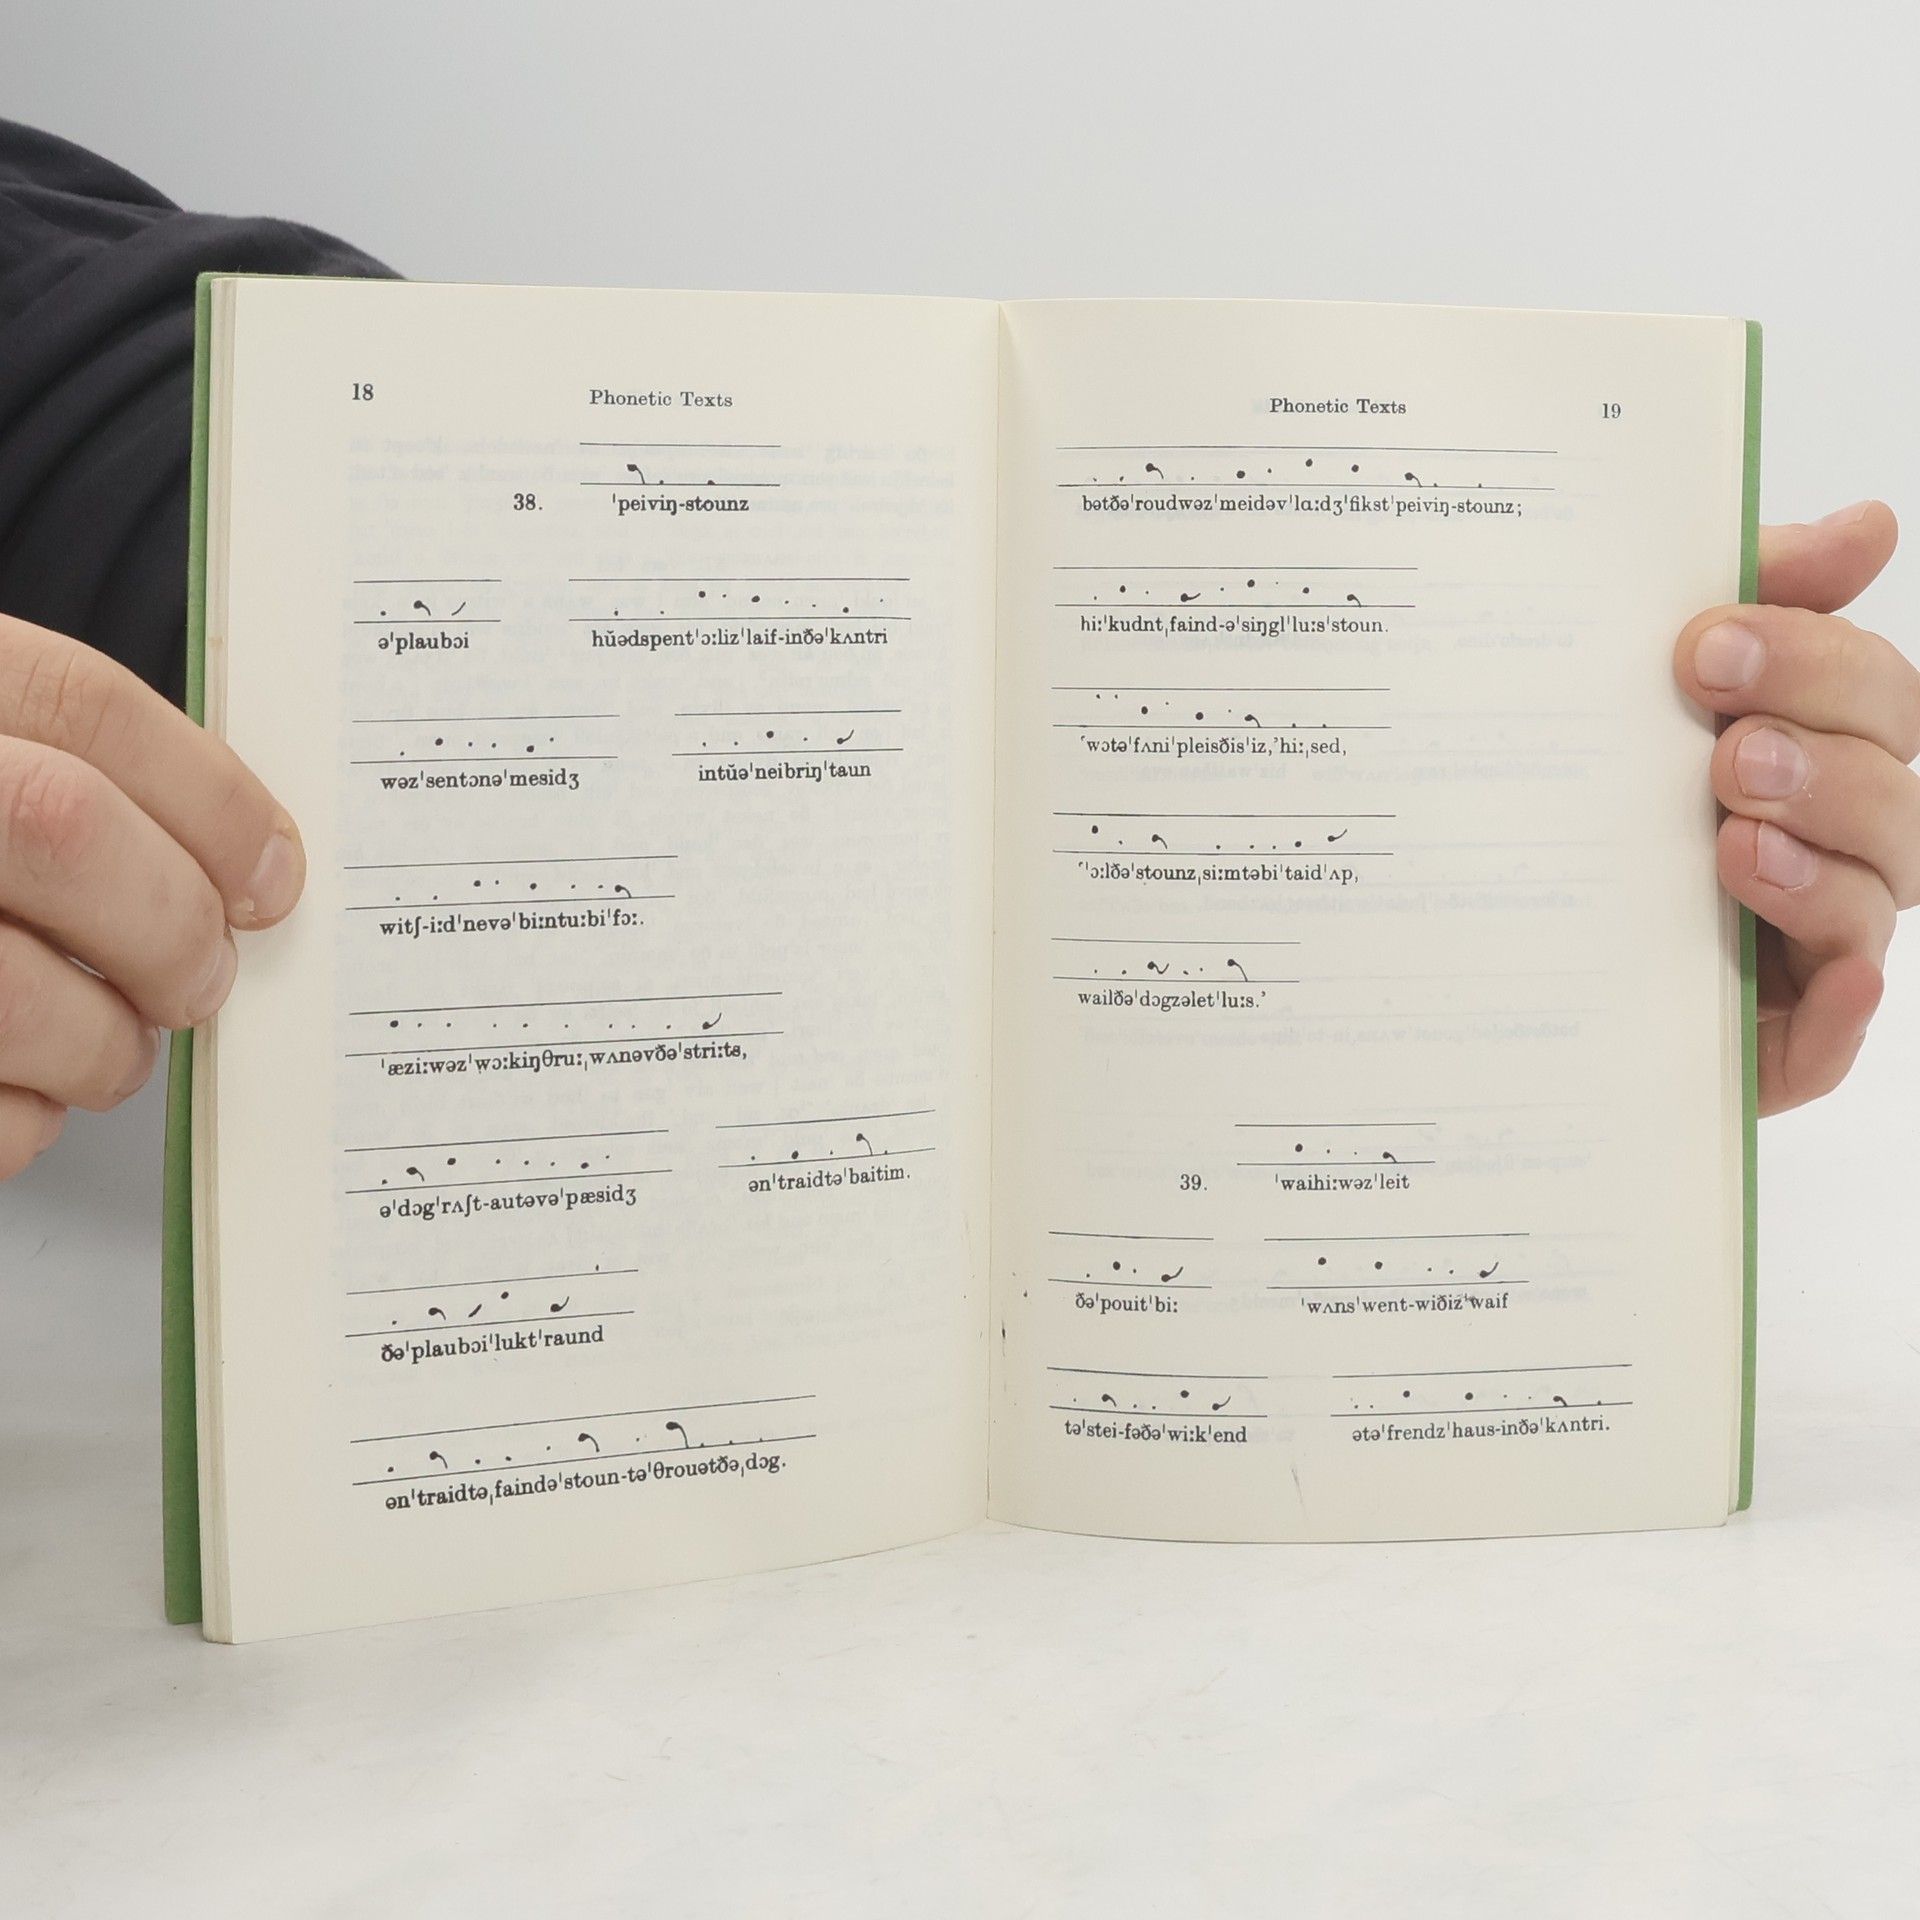 18
Phonetic Texts
38. ˈpeiviŋ-stounz
əˈplaubɔi hŭədspentˈɔːlizˈlaif-inðəˈkʌntri
wəzˈsentɔnəˈmesidʒ intŭəˈneibriŋˈtaun
witʃ-iːdˈnevəˈbiːntuːbiˈfɔː.
ˈæziːwəzˈwɔːkiŋθruːˌwʌnəvðəˈstriːts,
əˈdɔgˈrʌʃt-autəvəˈpæsidʒ ənˈtraidtəˈbaitim.
ðəˈplaubɔiˈluktˈraund
ənˈtraidtəˌfaindəˈstoun-təˈθrouətðəˌdɔg.
Phonetic Texts
19
bətðəˈroudwəzˈmeidəvˈlɑːdʒˈfikstˈpeiviŋ-stounz;
hiːˈkudntˌfaind-əˈsiŋglˈluːsˈstoun.
‘wɔtəˈfʌniˈpleisðisˈiz,’hiːˌsed,
‘ˈɔːlðəˈstounzˌsiːmtəbiˈtaidˈʌp,
wailðəˈdɔgzəletˈluːs.’
39. ˈwaihiːwəzˈleit
ðəˈpouitˈbiː ˈwʌnsˈwent-wiðizˈwaif
təˈstei-fəðəˈwiːkˈend ətəˈfrendzˈhaus-inðəˈkʌntri.